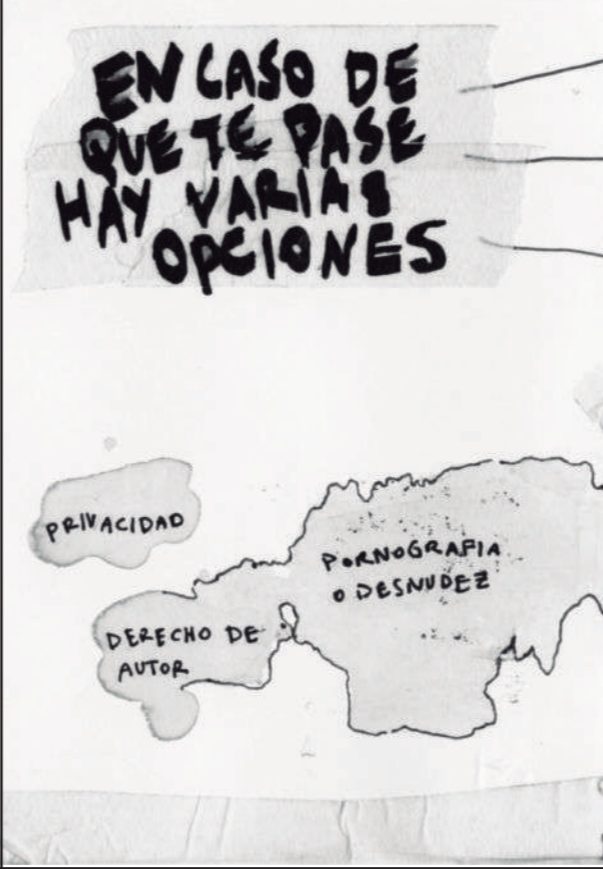 EN CASO DE
QUE TE PASE
HAY VARIAS
OPCIONES
PRIVACIDAD
PORNOGRAFIA
O DESNUDEZ
DERECHO DE
AUTOR